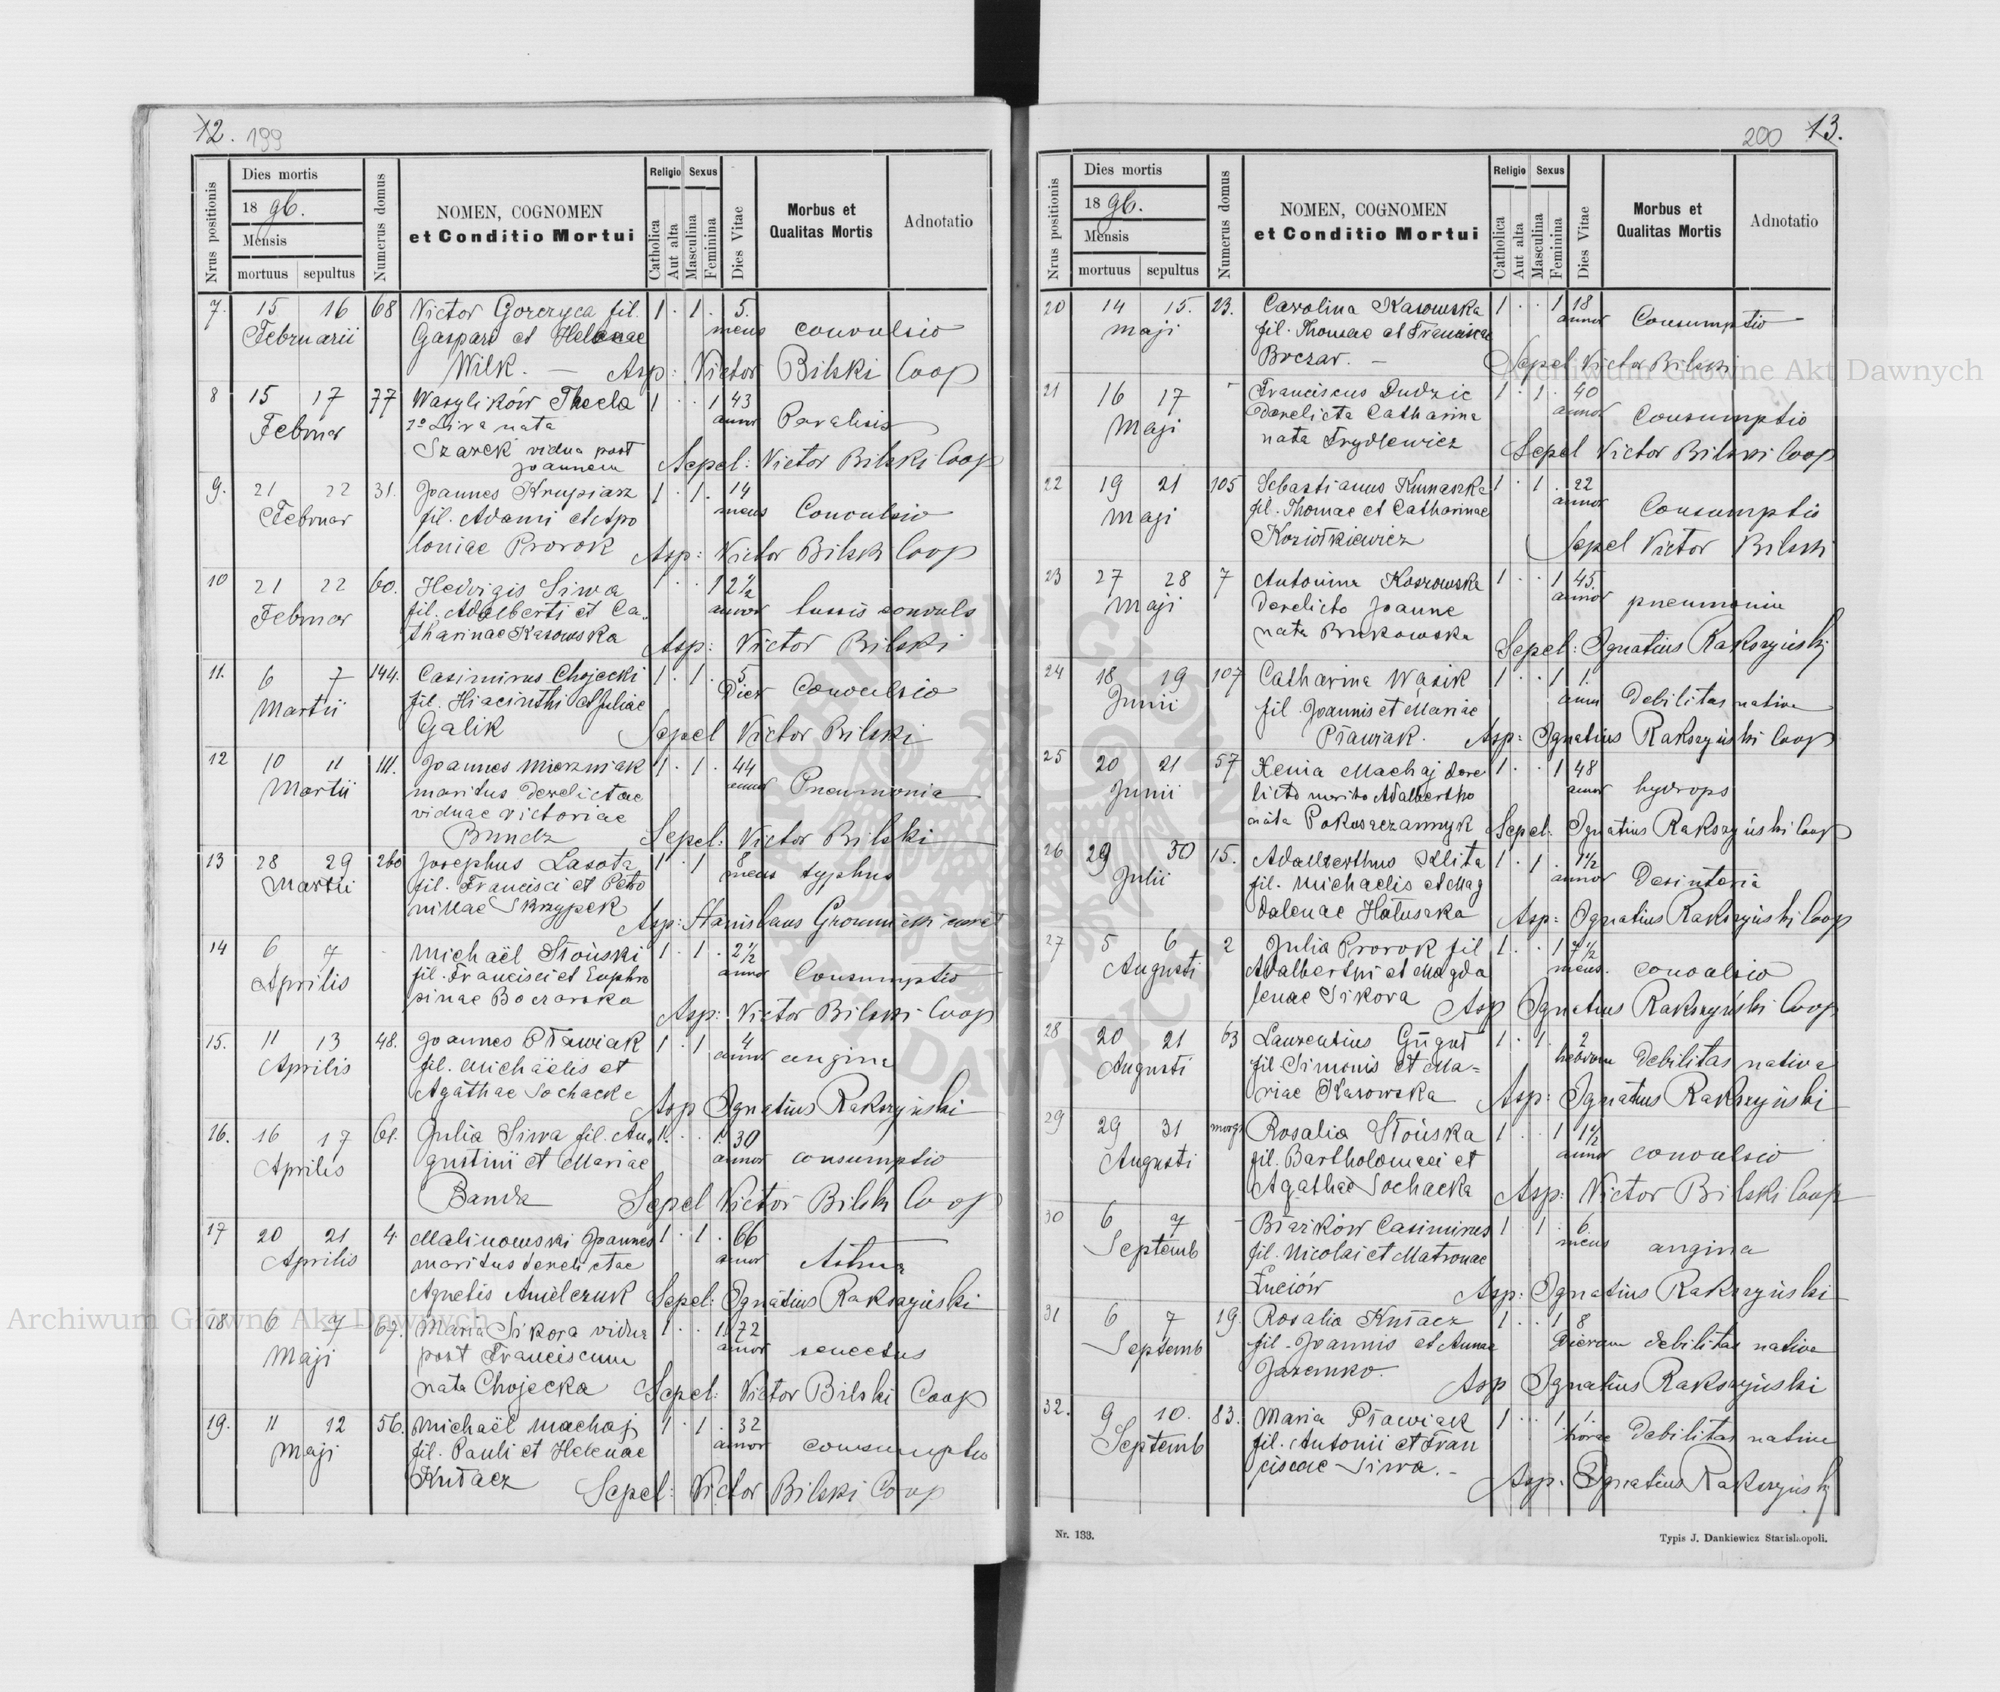 12. 199
Nrus positionis
Dies mortis
1896.
Mensis
mortuus sepultus
Numerus domus
NOMEN, COGNOMEN
et Conditio Mortui
Religio
Catholica
Aut alta
Sexus
Masculina
Feminina
Dies Vitae
Morbus et
Qualitas Mortis
Adnotatio
7. 15 16 68 Victor Gorczyca fil. 1 . 1 . 5.
Februarii Gaspari et Helenae mens convulsio
Wilk. — Asp: Victor Bilski Coop
8 15 17 77 Wasylików Thecla 1 . . 1 43
Februar 1º Siwa nata annor Paralisis
Szarek vidua post
Joannem Sepel: Victor Bilski Coop
9. 21 22 31. Joannes Krupiarz 1 . 1 . 14
Februar fil. Adami et Apo mens Convulsio
loniae Prorok Asp: Victor Bilski Coop
10 21 22 60. Hedvigis Siwa 1 . . 1 2½
Februar fil. Adalberti et Ca annor tussis convuls
tharinae Kasowska Asp: Victor Bilski
11. 6 7 144. Casimirus Chojecki 1 . 1 . 5
Martii fil. Hiacinthi et Juliae Dier Convulsio
Galik Sepel Victor Bilski
12 10 11 111. Joannes Mierzniak 1 . 1 . 44
Martii maritus derelictae annor Pneumonia
viduae Victoriae
Bundz Sepel: Victor Bilski
13 28 29 260 Josephus Lasota 1 . 1 8
Martii fil. Francisci et Petro mens typhus
nillae Skrzypek Asp: Stanislaus Gromnicki
14 6 7 - Michaël Stoński 1 . 1 . 2½
Aprilis fil. Francisci et Euphro annor Consumptio
sinae Boczarska Asp: Victor Bilski Coop
15. 11 13 48. Joannes Pławiak 1 . 1 4
Aprilis fil. Michäelis et annor angina
Agathae Sochacka Asp Ignatius Rakszyński
16. 16 17 61. Julia Siwa fil. Au 1 . . 1. 30
Aprilis gustini et Mariae annor consumptio
Banda Sepel Victor Bilski Coop
17 20 21 4. Malinowski Joannes 1 . 1 . 66
Aprilis maritus derelictae annor Astma
Agnetis Amielczuk Sepel: Ignatius Rakszyński
18 6 7 67. Maria Sikora vidua 1 . . 1. 72
Maji post Franciscum annor senectus
nata Chojecka Sepel: Victor Bilski Coop
19. 11 12 56. Michaël Machaj 1 . 1 . 32
Maji fil. Pauli et Helenae annor consumptio
Kułacz Sepel: Victor Bilski Coop
200 13.
Nrus positionis
Dies mortis
1896.
Mensis
mortuus sepultus
Numerus domus
NOMEN, COGNOMEN
et Conditio Mortui
Religio
Catholica
Aut alta
Sexus
Masculina
Feminina
Dies Vitae
Morbus et
Qualitas Mortis
Adnotatio
20 14 15. 23. Carolina Kasowska 1 . . 1 18
Maji fil. Thomae et Francisca annor Consumptio
Boczar. — Sepel Victor Bilski
21 16 17 - Franciscus Dudzic 1 . 1 . 40
Maji derelicta Catharina annor Consumptio
nata Frydlewicz Sepel Victor Bilski Coop
22 19 21 105 Sebastianus Kumaszka 1 . 1 . 22
Maji fil. Thomae et Catharinae annor Consumptio
Koziołkiewicz Sepel Victor Bilski
23 27 28 7 Antonina Koszowska 1 . . 1 45.
Maji derelicto Joanne annor pneumonia
nata Brukowska Sepel: Ignatius Rakszyński
24 18 19 107 Catharina Wąsik 1 . . 1 1.
Junii fil Joannis et Mariae anni Debilitas nativa
Pławiak. Asp: Ignatius Rakszyński Coop
25 20 21 57 Xenia Machaj dere 1 . . 1 48
Junii licto marito Adalbertho annor hydrops
nata Pokuszczannyk Sepel: Ignatius Rakszyński Coop
26 29 30 15. Adalberthus Klita 1 . 1 . 1½
Julii fil. Michaelis et Mag annor Desinteria
dalenae Hałuszka Asp: Ignatius Rakszyński Coop
27 5 6 2 Julia Prorok fil 1 . . 1 7½
Augusti Adalberthi et Magda mens. convulsio
lenae Sikora Asp Ignatius Rakszyński Coop
28 20 21 63 Laurentius 1 . 1 . 2
Augusti fil Simonis et Ma= hebdom Debilitas nativa
riae Kasowska Asp: Ignatius Rakszyński
29 29 31 morgi Rosalia Stońska 1 . . 1 1½
Augusti fil. Bartholomaei et annor convulsio
Agathae Sochacka Asp: Victor Bilski Coop
30 6 7 - Błażków Casimirus 1 1 . 6.
Septemb fil. Nicolai et Matronae mens angina
Łuciów Asp: Ignatius Rakszyński
31 6 7 19. Rosalia Kułacz 1 . . 1 8
Septemb fil. Joannis et Annae Dierum debilitas nativa
Jaremko. Asp Ignatius Rakszyński
32. 9 10. 83. Maria Pławiak 1 . . 1 1.
Septemb fil. Antonii et Fran horae Debilitas nativa
ciscae Siwa. - Asp: Ignatius Rakszyński
Nr. 133.
Typis J. Dankiewicz Stanislaopoli.
Archiwum Główne Akt Dawnych
Archiwum Główne Akt Dawnych
ARCHIWUM GŁÓWNE AKT DAWNYCH